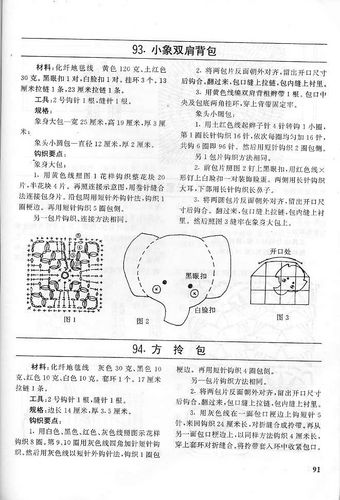 93. 小象双肩背包
材料:化纤地毯线 黄色 120 克,土红色
30 克。黑眼扣 1 对,白脸扣 1 对。挂环 3 个。13
厘米拉链 1 条,23 厘米拉链 1 条。
工具:2 号钩针 1 根,缝针 1 根。
规格:
象身大包—宽 25 厘米,高 19 厘米,厚 3 厘
米;
象头小圆包—直径 12 厘米,厚 2 厘米。
钩织要点:
象身大包:
1. 用黄色线照图 1 花样钩织整花块 20
片,半花块 4 片。再照连接示意图,用卷针缝合
法连接包身片。沿包周用短针外钩针法,钩织 1
圈梗边。再用短针钩织 5 圈包侧。
另一包片钩织、连接方法相同。
2. 将两包片反面朝外对齐,留出开口尺寸
后钩合。翻过来,包口缝上拉链,包内缝上衬里。
3. 用黄色线编双肩背包辫带 1 根。包口中
央及包底两角挂环,穿上背带固定牢。
象头小圆包:
1. 用土红色线起辫子针 4 针转钩 1 小圈。
第 1 圈长针钩织 16 针,依次每圈均匀加 16 针,
共钩 6 圈即 96 针。然后用短针钩织 2 圈包侧。
另 1 包片钩织方法相同。
2. 前包片照图 2 钉上黑眼扣,用红色线×
形钉上白脸扣一对装饰脸蛋。两侧用长针钩织
大耳,下部用长针钩织长鼻子。
3. 将两圆包片反面朝外对齐,留出开口尺
寸后钩合。翻过来,包口缝上拉链,包内缝上衬
里。然后照图 3 缝牢在象身大包上。
图 1
黑眼扣
白脸扣
图 2
开口处
图 3
94. 方拎包
材料:化纤地毯线 灰色 30 克,黑色 10
克,红色 10 克,白色 10 克。套环 1 个。17 厘米
拉链 1 条。
工具:2 号钩针 1 根,缝针 1 根。
规格:边长 14 厘米,厚 3.5 厘米。
钩织要点:
1. 用白色、黑色、红色、灰色线照图示花样
钩织 8 圈。第 9、10 圈用灰色线四角加针短针钩
织。然后用灰色线以短针外钩针法,钩织 1 圈包
梗边。再用短针钩织 4 圈包侧。
另一包片钩织方法相同。
2. 将两包片反面朝外对齐,留出开口尺寸
后钩合。翻过来,包口缝上拉链,包内缝上衬里。
3. 用灰色线在一面包口梗边上钩短针 5
针,来回钩织 24 厘米长,对折缝合成拎带。再从
另一面包口梗边上,以同样方法钩织 4 厘米长,
穿上套环对折缝合,将拎带套入环中收紧包口。
91